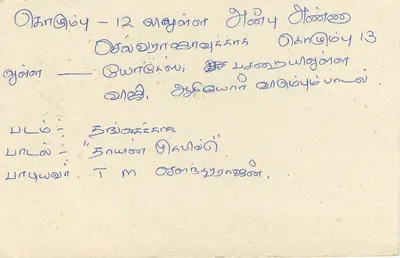 கொழும்பு - 12 லுவுள்ள அன்பு அண்ண
செல்வராஜாவுக்காக கொழும்பு 13
லுள்ள — யோகேஸ், பசறையிலுள்ள
விஜி, ஆகியோர் விரும்பும் பாடல்.
படம் :- தங்கைக்காக
பாடல் :- "தாயின் முகமிங்கே"
பாடியவர். T M சௌந்தரராஜன்.